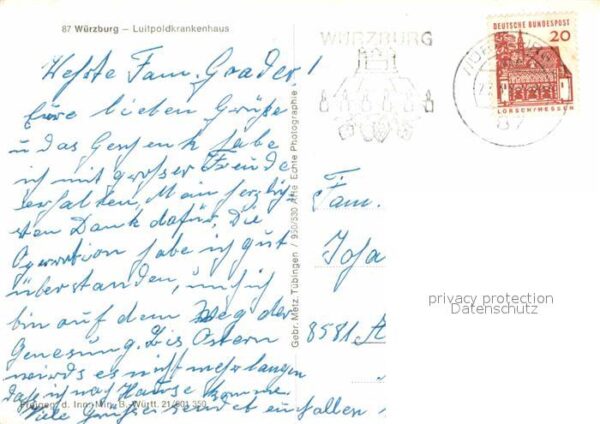 87 Würzburg — Luitpoldkrankenhaus
WÜRZBURG
DEUTSCHE BUNDESPOST
20
LORSCH/HESSEN
87
Werte Fam. Grader!
Eure lieben Grüße
u das Geschenk habe
ich mit grosser Freude
erhalten, Mein herzlich-
sten Dank dafür, Die
Operation habe ich gut
überstanden, und ich
bin auf dem Weg der
Genesung. Bis Ostern
wird es nicht mehr langen
daß ich nach Hause komme.
Viele Grüße sendet euch allen
Gebr. Metz Tübingen / 950/530 Alle Echte Photographie
Fam.
8581
privacy protection
Datenschutz
d. Inn. Min. B.-Württ. 21/601 350